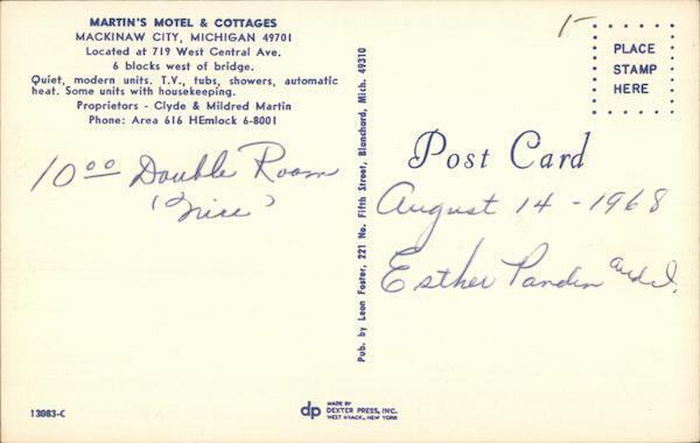 MARTIN'S MOTEL & COTTAGES
MACKINAW CITY, MICHIGAN 49701
Located at 719 West Central Ave.
6 blocks west of bridge.
Quiet, modern units. T.V., tubs, showers, automatic
heat. Some units with housekeeping.
Proprietors - Clyde & Mildred Martin
Phone: Area 616 HEmlock 6-8001
10⁰⁰ Double Room
"Nice"
13083-C
Pub. by Leon Foster, 221 No. Fifth Street, Blanchard, Mich. 49310
MADE BY
dp DEXTER PRESS, INC.
WEST NYACK, NEW YORK
1-
PLACE
STAMP
HERE
Post Card
August 14 - 1968
Esther Pardin and I.